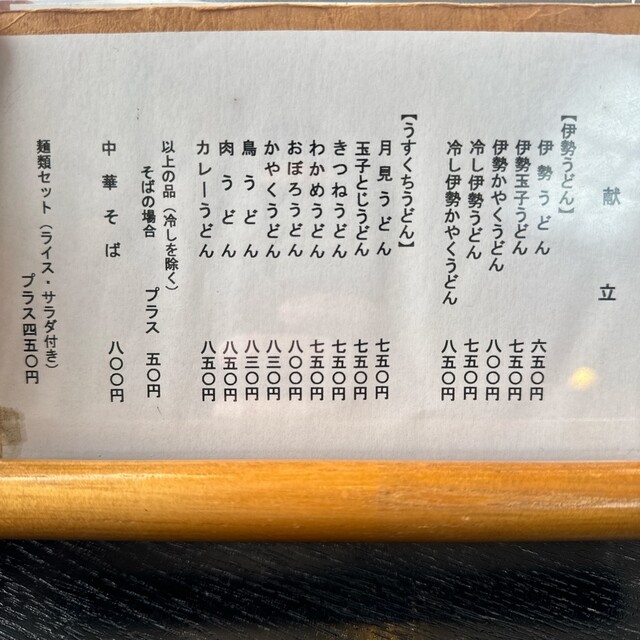 献立
【伊勢うどん】
伊勢うどん 六五〇円
伊勢玉子うどん 七五〇円
伊勢かやくうどん 八〇〇円
冷し伊勢うどん 七五〇円
冷し伊勢かやくうどん 八五〇円
【うすくちうどん】
月見うどん 七五〇円
玉子とじうどん 七五〇円
きつねうどん 七五〇円
わかめうどん 七五〇円
おぼろうどん 八〇〇円
かやくうどん 八三〇円
鳥うどん 八三〇円
肉うどん 八五〇円
カレーうどん 八五〇円
以上の品（冷しを除く）
そばの場合 プラス 五〇円
中華そば 八〇〇円
麺類セット（ライス・サラダ付き）
プラス四五〇円